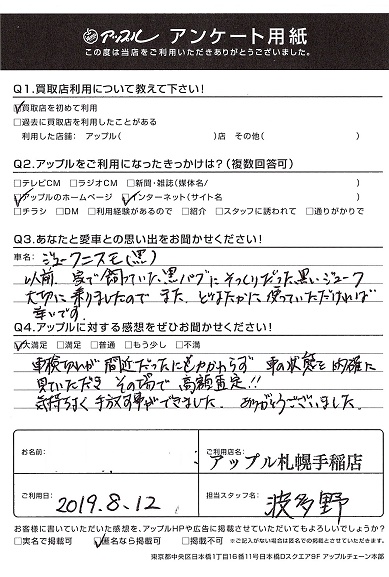 アップル アンケート用紙
この度は当店をご利用いただきありがとうございました。
Q1.買取店利用について教えて下さい!
☑買取店を初めて利用
□過去に買取店を利用したことがある
利用した店舗： アップル( )店 その他( )
Q2.アップルをご利用になったきっかけは?(複数回答可)
□テレビCM □ラジオCM □新聞・雑誌(媒体名/ )
☑アップルのホームページ ☑インターネット(サイト名 )
□チラシ □DM □利用経験があるので □紹介 □スタッフに誘われて □通りがかりで
Q3.あなたと愛車との思い出をお聞かせください!
車名： ジュークニスモ(黒)
以前、家で飼っていた黒パグにそっくりだった黒いジューク
大切に乗りましたので また、どなたかに使っていただければ
幸いです。
Q4.アップルに対する感想をぜひお聞かせください!
☑大満足 □満足 □普通 □もう少し □不満
車検切れが間近だったにもかかわらず 車の状態を的確に
見ていただき その場で 高額査定!!
気持ちよく 手放す事ができました。 ありがとうございました。
お名前：
ご利用店名：
アップル札幌手稲店
ご利用日： 2019.8.12
担当スタッフ名： 波多野
お客様に書いていただいた感想を、アップルHPや広告に掲載させていただいてもよろしいでしょうか?
□実名で掲載可 ☑匿名なら掲載可 □掲載不可 ※ご記入がない場合は匿名での掲載とさせていただきます。
東京都中央区日本橋1丁目16番11号日本橋Dスクエア9F アップルチェーン本部